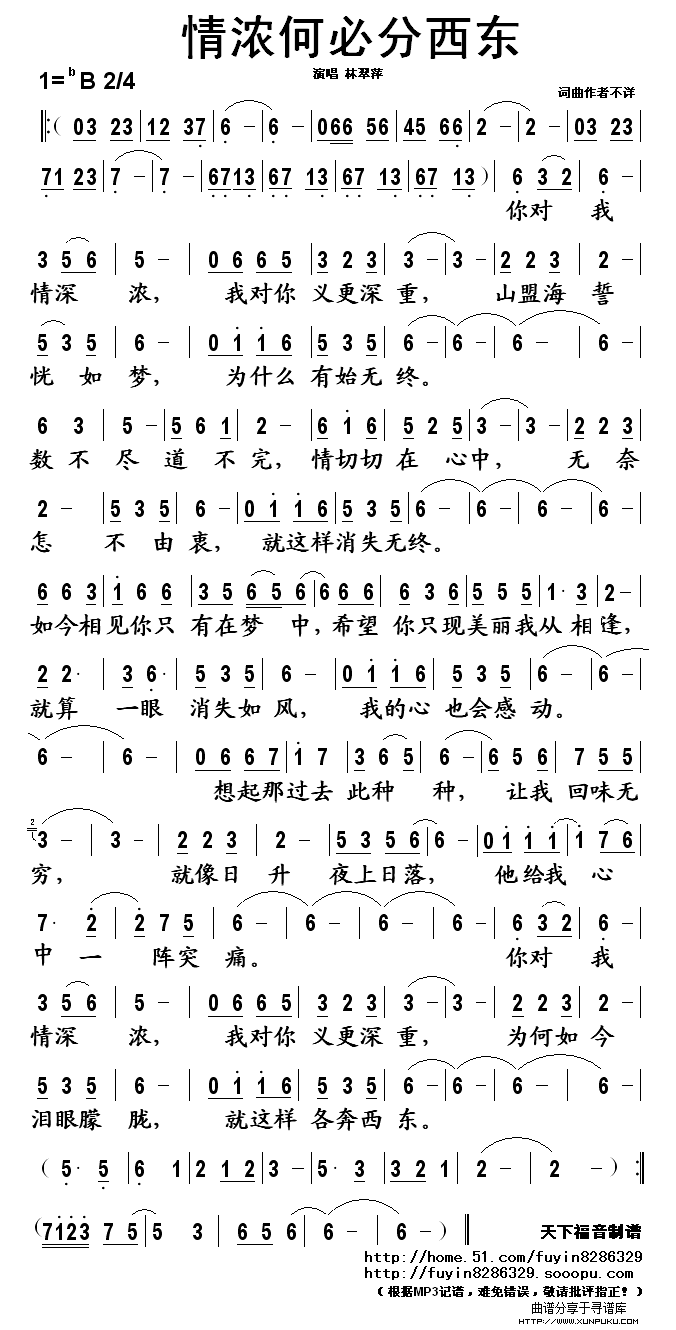 情浓何必分西东
1=ᵇB 2/4
演唱 林翠萍
词曲作者不详
‖:( 03 23 | 12 37 | 6 - | 6 - | 066 56 | 45 66 | 2 - | 2 - | 03 23 |
71 23 | 7 - | 7 - | 6713 | 67 13 | 67 13 | 67 13 ) | 6 32 | 6 - |
你对 我
3 56 | 5 - | 0665 | 323 | 3 - | 3 - | 223 | 2 - |
情深 浓, 我对你 义更深 重, 山盟海 誓
535 | 6 - | 0116 | 535 | 6 - | 6 - | 6 - | 6 - |
恍 如 梦, 为什么 有始无 终。
6 3 | 5 - | 561 | 2 - | 616 | 525 | 3 - | 3 - | 223 |
数 不 尽 道 不 完, 情切切 在 心中, 无 奈
2 - | 535 | 6 - | 0116 | 535 | 6 - | 6 - | 6 - | 6 - |
怎 不 由 衷, 就这样消失无终。
663 | 166 | 35 65 | 6 666 | 636 | 555 | 1· 3 | 2 - |
如今相见你只 有在梦 中,希望 你只现美丽我从 相逢,
2 2· | 3 6· | 535 | 6 - | 0116 | 535 | 6 - | 6 - |
就算 一眼 消失如 风, 我的心 也会感 动。
6 - | 6 - | 0667 | 1 7 | 365 | 6 - | 656 | 755 |
想起那过去 此种 种, 让我 回味无
2 3 - | 3 - | 223 | 2 - | 5356 | 6 - | 0111 | 176 |
穷, 就像日 升 夜上日落, 他给我 心
7· 2 | 275 | 6 - | 6 - | 6 - | 6 - | 6 32 | 6 - |
中 一 阵突 痛。 你对 我
3 56 | 5 - | 0665 | 323 | 3 - | 3 - | 223 | 2 - |
情深 浓, 我对你 义更深 重, 为何如 今
535 | 6 - | 0116 | 535 | 6 - | 6 - | 6 - | 6 - |
泪眼朦 胧, 就这样 各奔西 东。
( 5· 5 | 6 1 | 2 12 | 3 - | 5· 3 | 3 21 | 2 - | 2 - ) :‖
(7123 75 | 5 3 | 656 | 6 - | 6 - ) ‖
天下福音制谱
http://home.51.com/fuyin8286329
http://fuyin8286329.sooopu.com
（根据MP3记谱，难免错误，敬请批评指正！）
曲谱分享于寻谱库
HTTP://WWW.XUNPUKU.COM